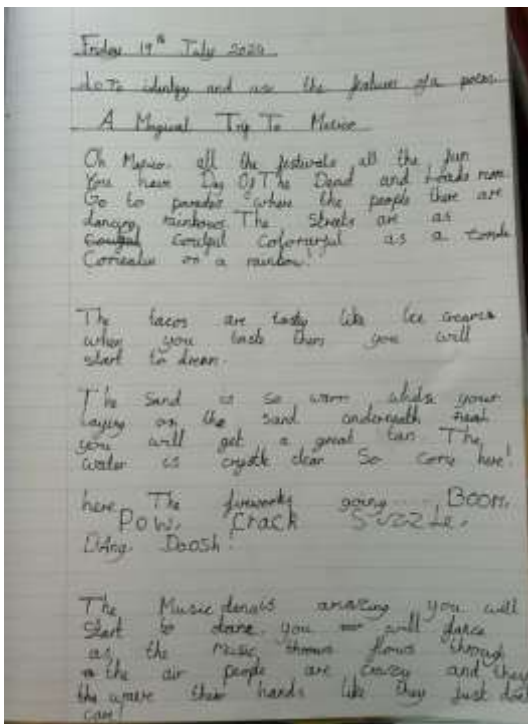 Friday 19th July 2024
LO To identfy and use the features of a poem
A Magical Trip To Mexico
Oh Mexico, all the festivals all the fun
You have Day Of The Dead and loads more
Go to paradise where the people there are
dancing rainbows The Streets are as
as a
on a rainbow!
The tacos are tasty like Ice creams
when you taste them you will
start to dream.
The Sand is so warm whilst your
laying on the sand underneath
you will get a great tan. The
water is crystle clear So come here!
here The fireworks going ..... BOOM,
POW, Crack SIZZLE,
BAng, Doosh!
The Music amazing you will
Start to dance. you will dance
as the music flows through
the air people are crazy and they
the wave their hands like they Just dont
care!